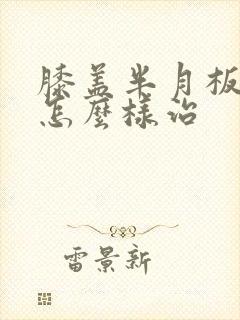 膝盖半月板
怎麼样治
雷景新